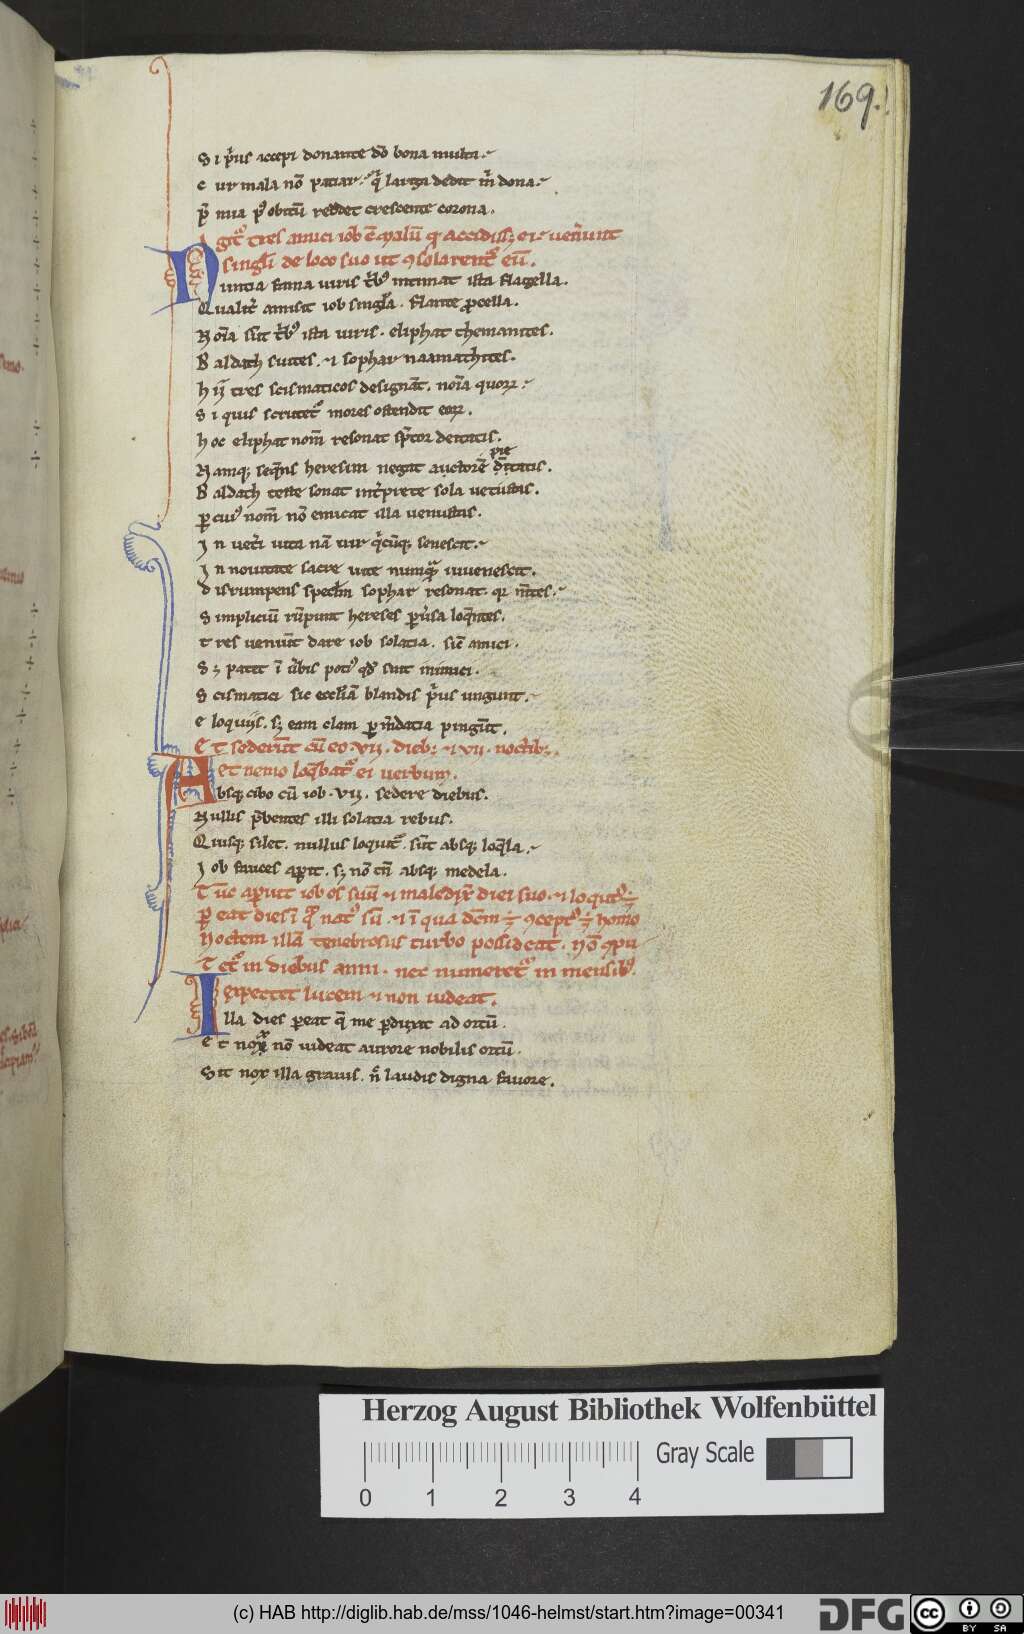 169.
S i p̄us accepi donante dō bona multa.
C ur mala nō patiar. q̄ larga dedit m̄ dona.
p̄ mia p⁹ obitū reddet crescente corona.
I git᷑ tres amici iob
singl̄i de loco suo ut ꝯsolarent᷑ eū.
N untia fama uiris t̄b⁹ intimat ista flagella.
Q ualit̄ amisit iob singl̄a. flante ꝓcella.
N oīa sūt t̄b⁹ ista uiris. eliphat themanites.
B aldach suites. ⁊ sophar naamathites.
h ij tres scismaticos designāt. noīa quoꝝ.
S i quis scrutet᷑ mores ostendit eoꝝ.
h oc eliphat nom̄ resonat sp̄tor deitatis.
pie
N amq; seq̄ns heresim negat auctorē d̄itatis.
B aldach teste sonat int̄prete sola uetustas.
ꝑ cui⁹ nom̄ nō emicat illa uenustas.
I n uet̄i uita nā uir q̄cūq; senescit.
I n nouitate sacre uite numqᷓ iuuenescit.
d isrumpens specl̄m sophar resonat. qr m̄tes.
S impliciū rūpunt hereses ꝑūsa loq̄ntes.
t res ueniūt dare iob solatia. sic̄ amici.
S ꝫ patet ī ūbis poti⁹ qđ sunt inimici.
S cismatici sic eccl̄iā blandis p̄us ungunt.
e loquijs. sꝫ eam clam ꝑ m̄datia pingūt.
E t sederūt cū eo. vij. dieb; ⁊ vij. noctib;.
et nemo loq̄bat᷑ ei uerbum.
A bsq; cibo cū iob. vij. sedere diebus.
N ullis p̄bentes illi solatia rebus.
Q uisq; silet. nullus loquit᷑. sūt absq; loq̄la.
I ob fauces aꝑit. sꝫ nō tn̄ absq; medela.
T ūc aꝑuit iob os suū ⁊ maledix̄ diei suo. ⁊ loqut᷑⁹
ꝑ eat dies ī q᷑ nat⁹ sū. ⁊ ī qua dc̄m ÷ ꝯcept⁹ ÷ homo
N octem illā tenebrosus turbo possideat. Nō ꝯpu
T et᷑ in diebus anni. nec numeret᷑ in mensib⁹.
expectet lucem ⁊ non uideat.
I lla dies ꝑeat q̄ me ꝑduxit ad ortū.
e t nox nō uideat aurore nobilis ortū.
S it nox illa grauis. n̄ laudis digna fauore.
Herzog August Bibliothek Wolfenbüttel
Gray Scale
0 1 2 3 4
(c) HAB http://diglib.hab.de/mss/1046-helmst/start.htm?image=00341
DFG
cc BY SA